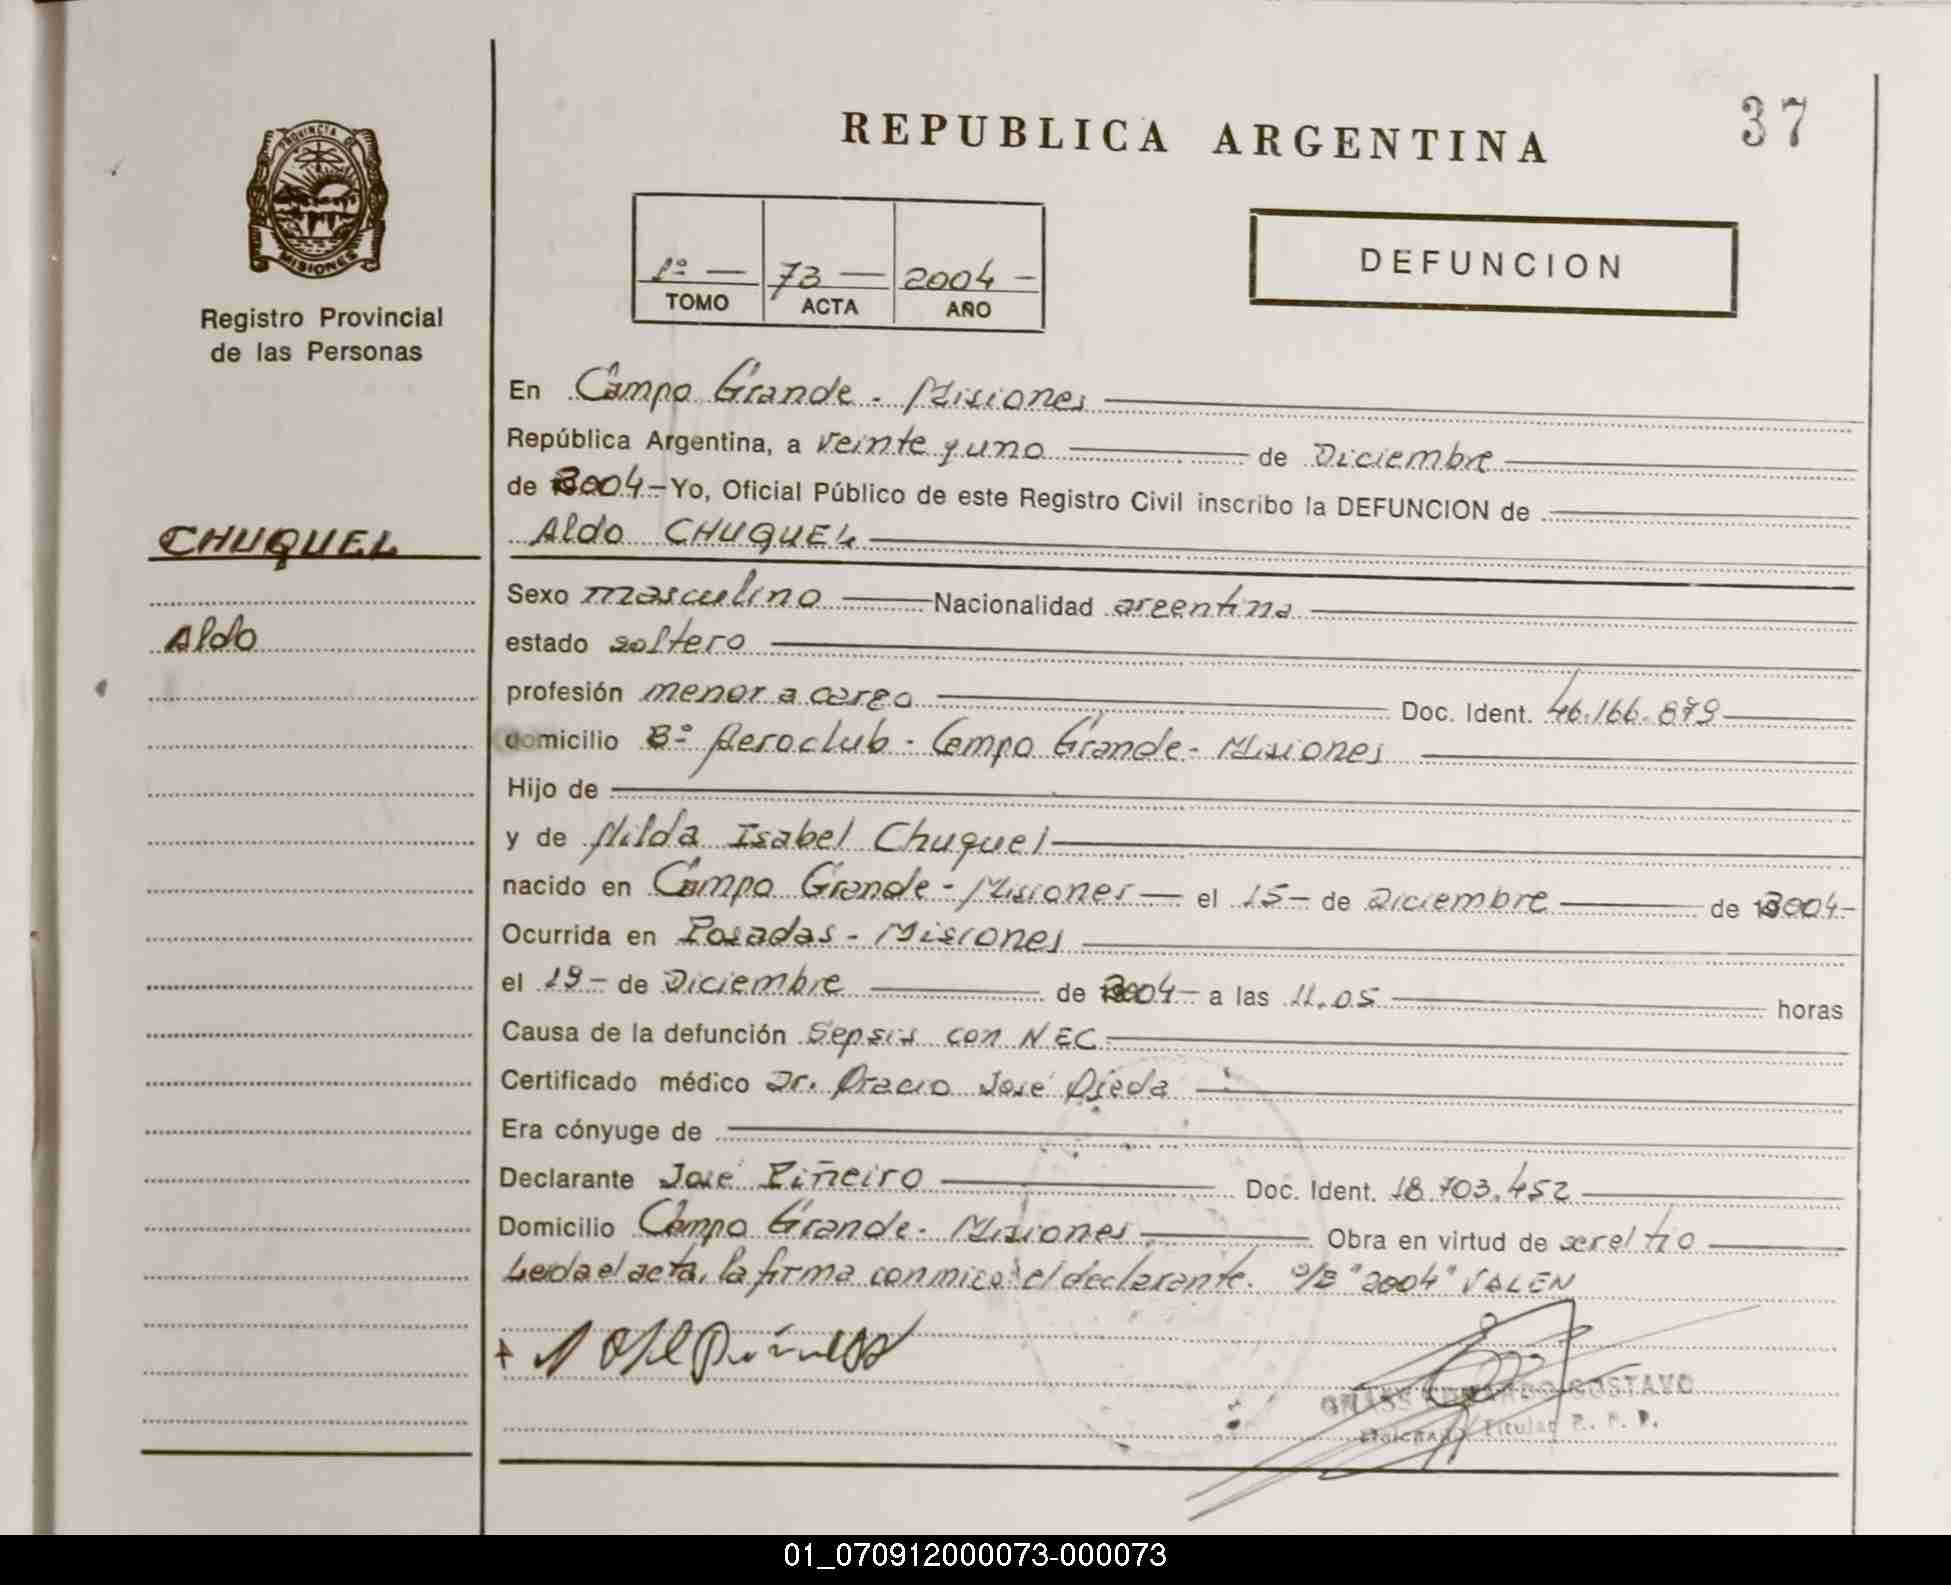 REPUBLICA ARGENTINA
37
PROVINCIA DE
MISIONES
Registro Provincial
de las Personas
1º — 73 — 2004 -
TOMO ACTA AÑO
DEFUNCION
CHUQUEL
Aldo
En Campo Grande - Misiones
República Argentina, a veinte y uno de Diciembre
de 2004 - Yo, Oficial Público de este Registro Civil inscribo la DEFUNCION de
Aldo CHUQUEL
Sexo masculino Nacionalidad argentina
estado soltero
profesión menor a cargo Doc. Ident. 46.166.879
domicilio Bº Aeroclub - Campo Grande - Misiones
Hijo de
y de Nilda Isabel Chuquel
nacido en Campo Grande - Misiones — el 15 - de Diciembre de 2004 -
Ocurrida en Posadas - Misiones
el 19 - de Diciembre de 2004 - a las 11.05 horas
Causa de la defunción Sepsis con NEC
Certificado médico Dr. Oracio José Ojeda
Era cónyuge de
Declarante José Piñeiro Doc. Ident. 18.703.452
Domicilio Campo Grande - Misiones Obra en virtud de ser el tio
Leida el acta, la firma conmigo el declarante. S/B "2004" VALEN
GUSTAVO
Titular R. P. P.
01_070912000073-000073